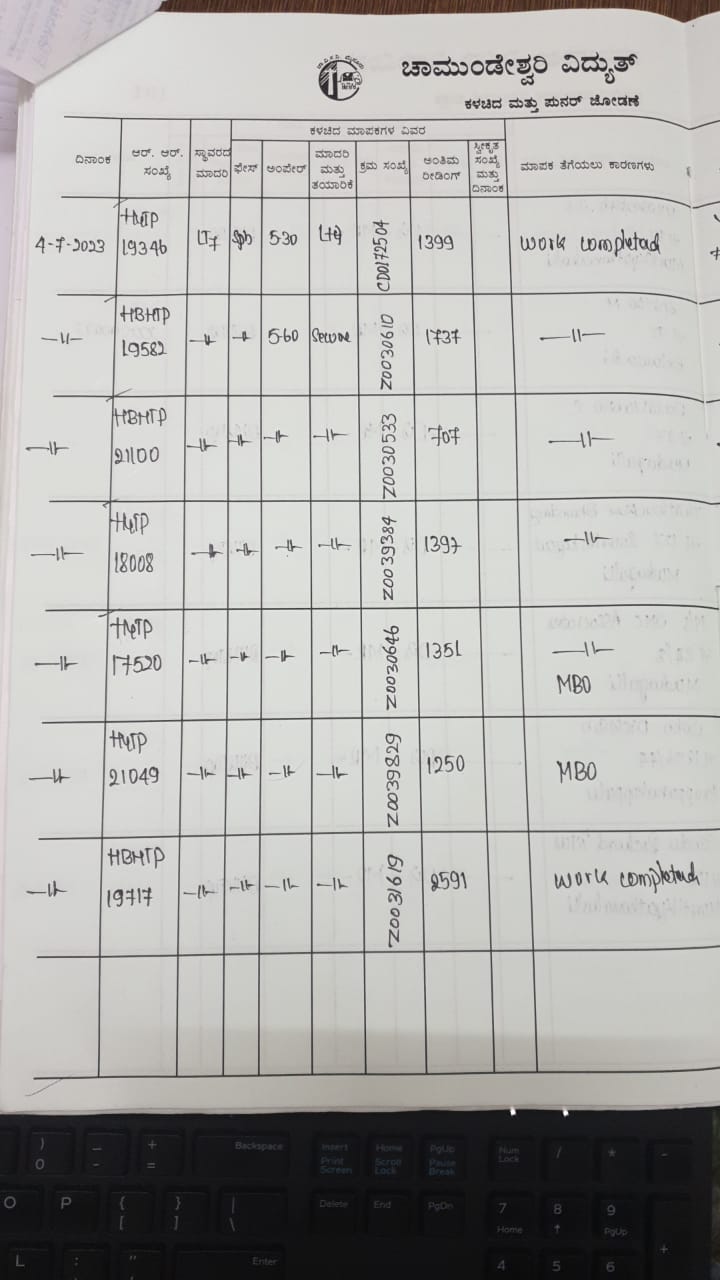 ಚಾಮುಂಡೇಶ್ವರಿ ವಿದ್ಯುತ್
ಕಳಚಿದ ಮತ್ತು ಪುನರ್ ಜೋಡಣೆ
ಕಳಚಿದ ಮಾಪಕಗಳ ವಿವರ
ದಿನಾಂಕ ಆರ್. ಆರ್. ಸಂಖ್ಯೆ ಸ್ಥಾವರದ ಮಾದರಿ ಫೇಸ್ ಅಂಪೇರ್ ಮಾದರಿ ಮತ್ತು ತಯಾರಿಕೆ ಕ್ರಮ ಸಂಖ್ಯೆ ಅಂತಿಮ ರೀಡಿಂಗ್ ಸ್ವೀಕೃತ ಸಂಖ್ಯೆ ಮತ್ತು ದಿನಾಂಕ ಮಾಪಕ ತೆಗೆಯಲು ಕಾರಣಗಳು
4-7-2023 19346 LT7 5-30 CD0172504 1399 work completed
-11- HBHTP 19582 -11- -11- 5-60 Secure Z0030610 1737 -11-
-11- HBHTP 21100 -11- -11- -11- -11- Z0030533 707 -11-
-11- 18008 -11- -11- -11- -11- Z0039384 1397 -11-
-11- 17520 -11- -11- -11- -11- Z0030646 1351 -11-
MBO
-11- 21049 -11- -11- -11- -11- Z0039829 1250 MBO
-11- HBHTP 19717 -11- -11- -11- -11- Z0031619 2591 work completed
) 0
_ -
+ =
Backspace
Insert
Print Screen
Home
Scroll Lock
PgUp
Pause Break
Num Lock
/
*
-
O
P
{ [
} ]
| \
Delete
End
PgDn
7 Home
8
9 PgUp
+
L
: ;
"
Enter
4
5
6